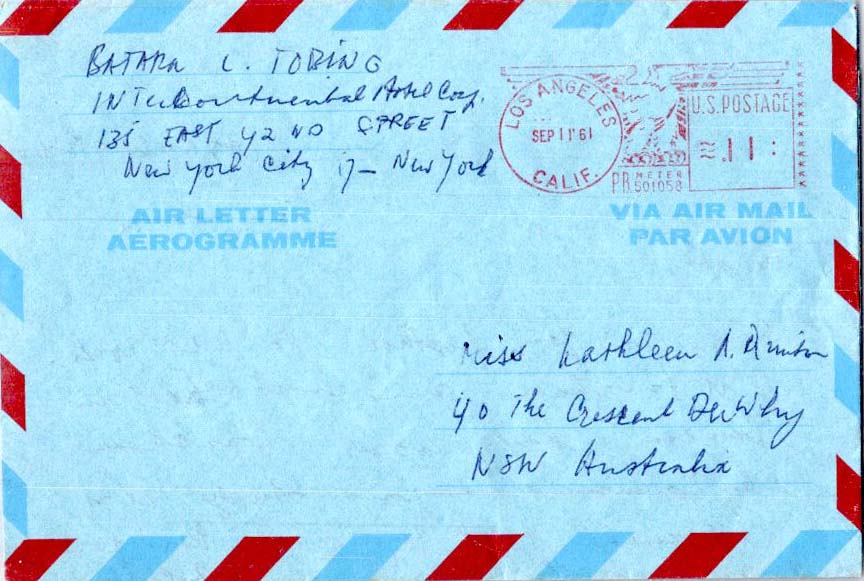 BATARA L. TOBING
Intercontinental Hotel Corp.
135 EAST 42 ND STREET
New York City 17 - New York
LOS ANGELES
SEP 11 '61
CALIF.
U.S. POSTAGE
.11
P.B. METER
501058
AIR LETTER
AÉROGRAMME
VIA AIR MAIL
PAR AVION
Miss Kathleen A.
40 The Crescent Dee Why
NSW Australia